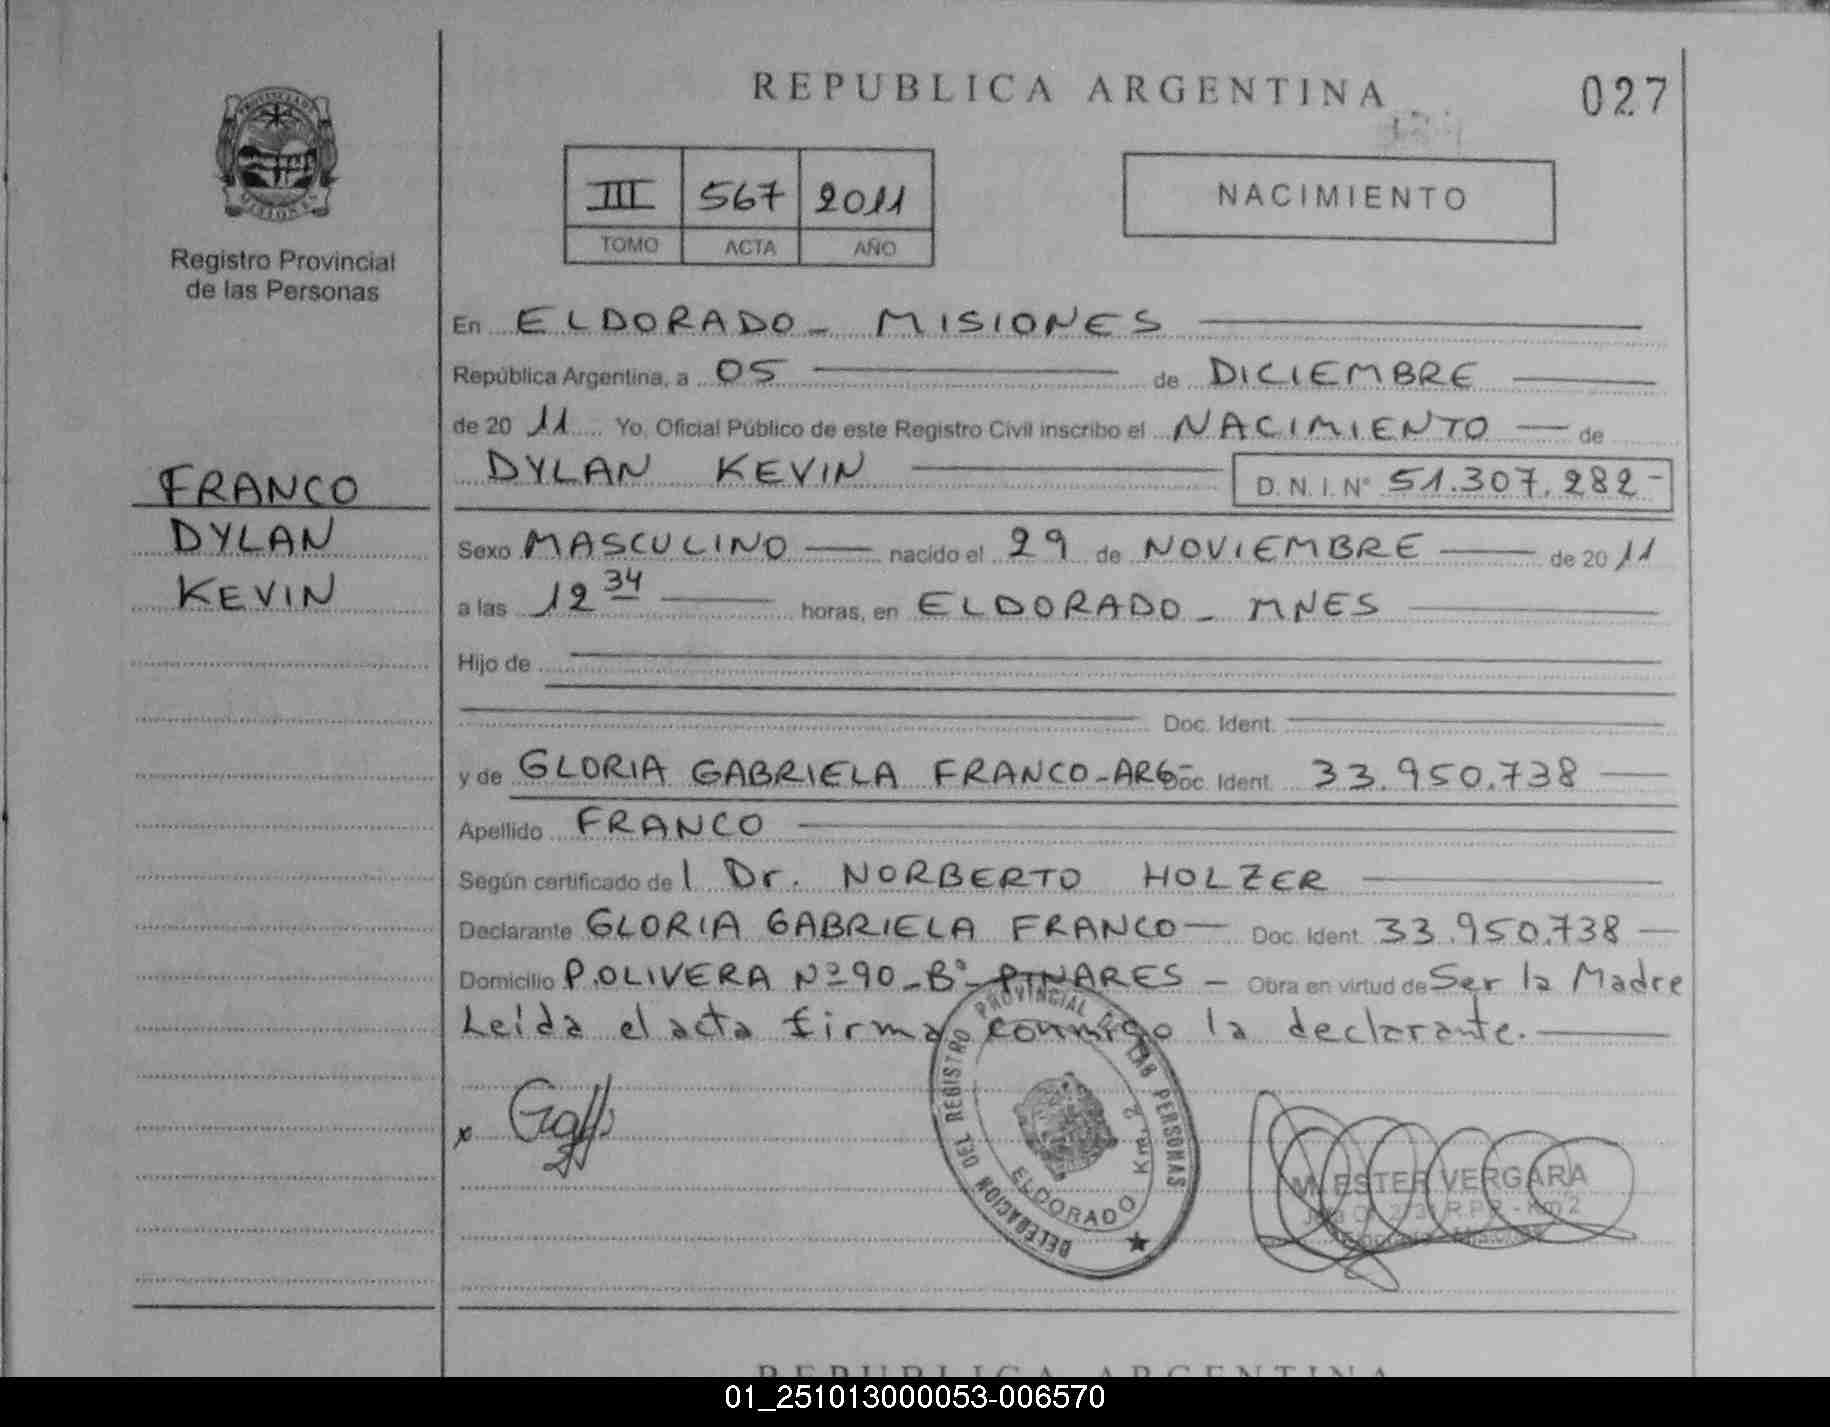 REPUBLICA ARGENTINA
027
III 567 2011
TOMO ACTA AÑO
NACIMIENTO
Registro Provincial
de las Personas
FRANCO
DYLAN
KEVIN
En ELDORADO - MISIONES
República Argentina, a 05 de DICIEMBRE
de 20 11 Yo, Oficial Público de este Registro Civil inscribo el NACIMIENTO de
DYLAN KEVIN D.N.I. Nº 51.307.282-
Sexo MASCULINO nacido el 29 de NOVIEMBRE de 20 11
a las 12 34 horas, en ELDORADO - MNES
Hijo de
Doc. Ident.
y de GLORIA GABRIELA FRANCO-ARG- Doc. Ident. 33.950.738
Apellido FRANCO
Según certificado de l Dr. NORBERTO HOLZER
Declarante GLORIA GABRIELA FRANCO Doc. Ident. 33.950.738
Domicilio P.OLIVERA Nº 90-Bº-PINARES - Obra en virtud de Ser la Madre
Leída el acta firma conmigo la declarante.
x
DELEGACION DEL REGISTRO PROVINCIAL DE LAS PERSONAS
ELDORADO Km. 2
M. ESTER VERGARA
R.P.P. - Km 2
REPUBLICA ARGENTINA
01_251013000053-006570